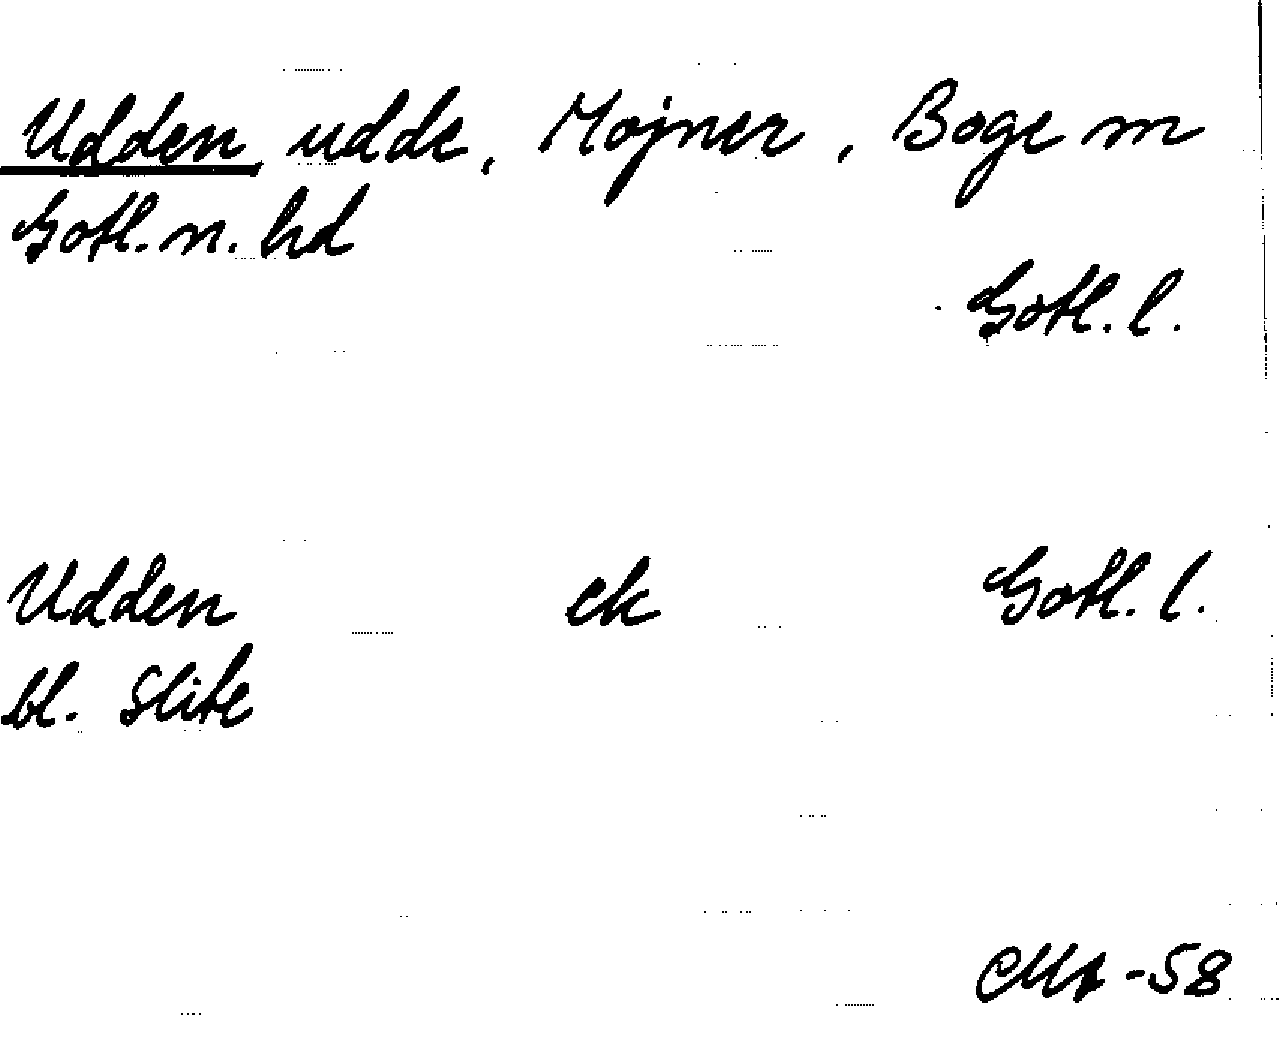 Udden udde, Mojner, Boge sn
Gotl. n. hd
Gotl. l.
Udden ek Gotl. l.
bl. Slite
-58